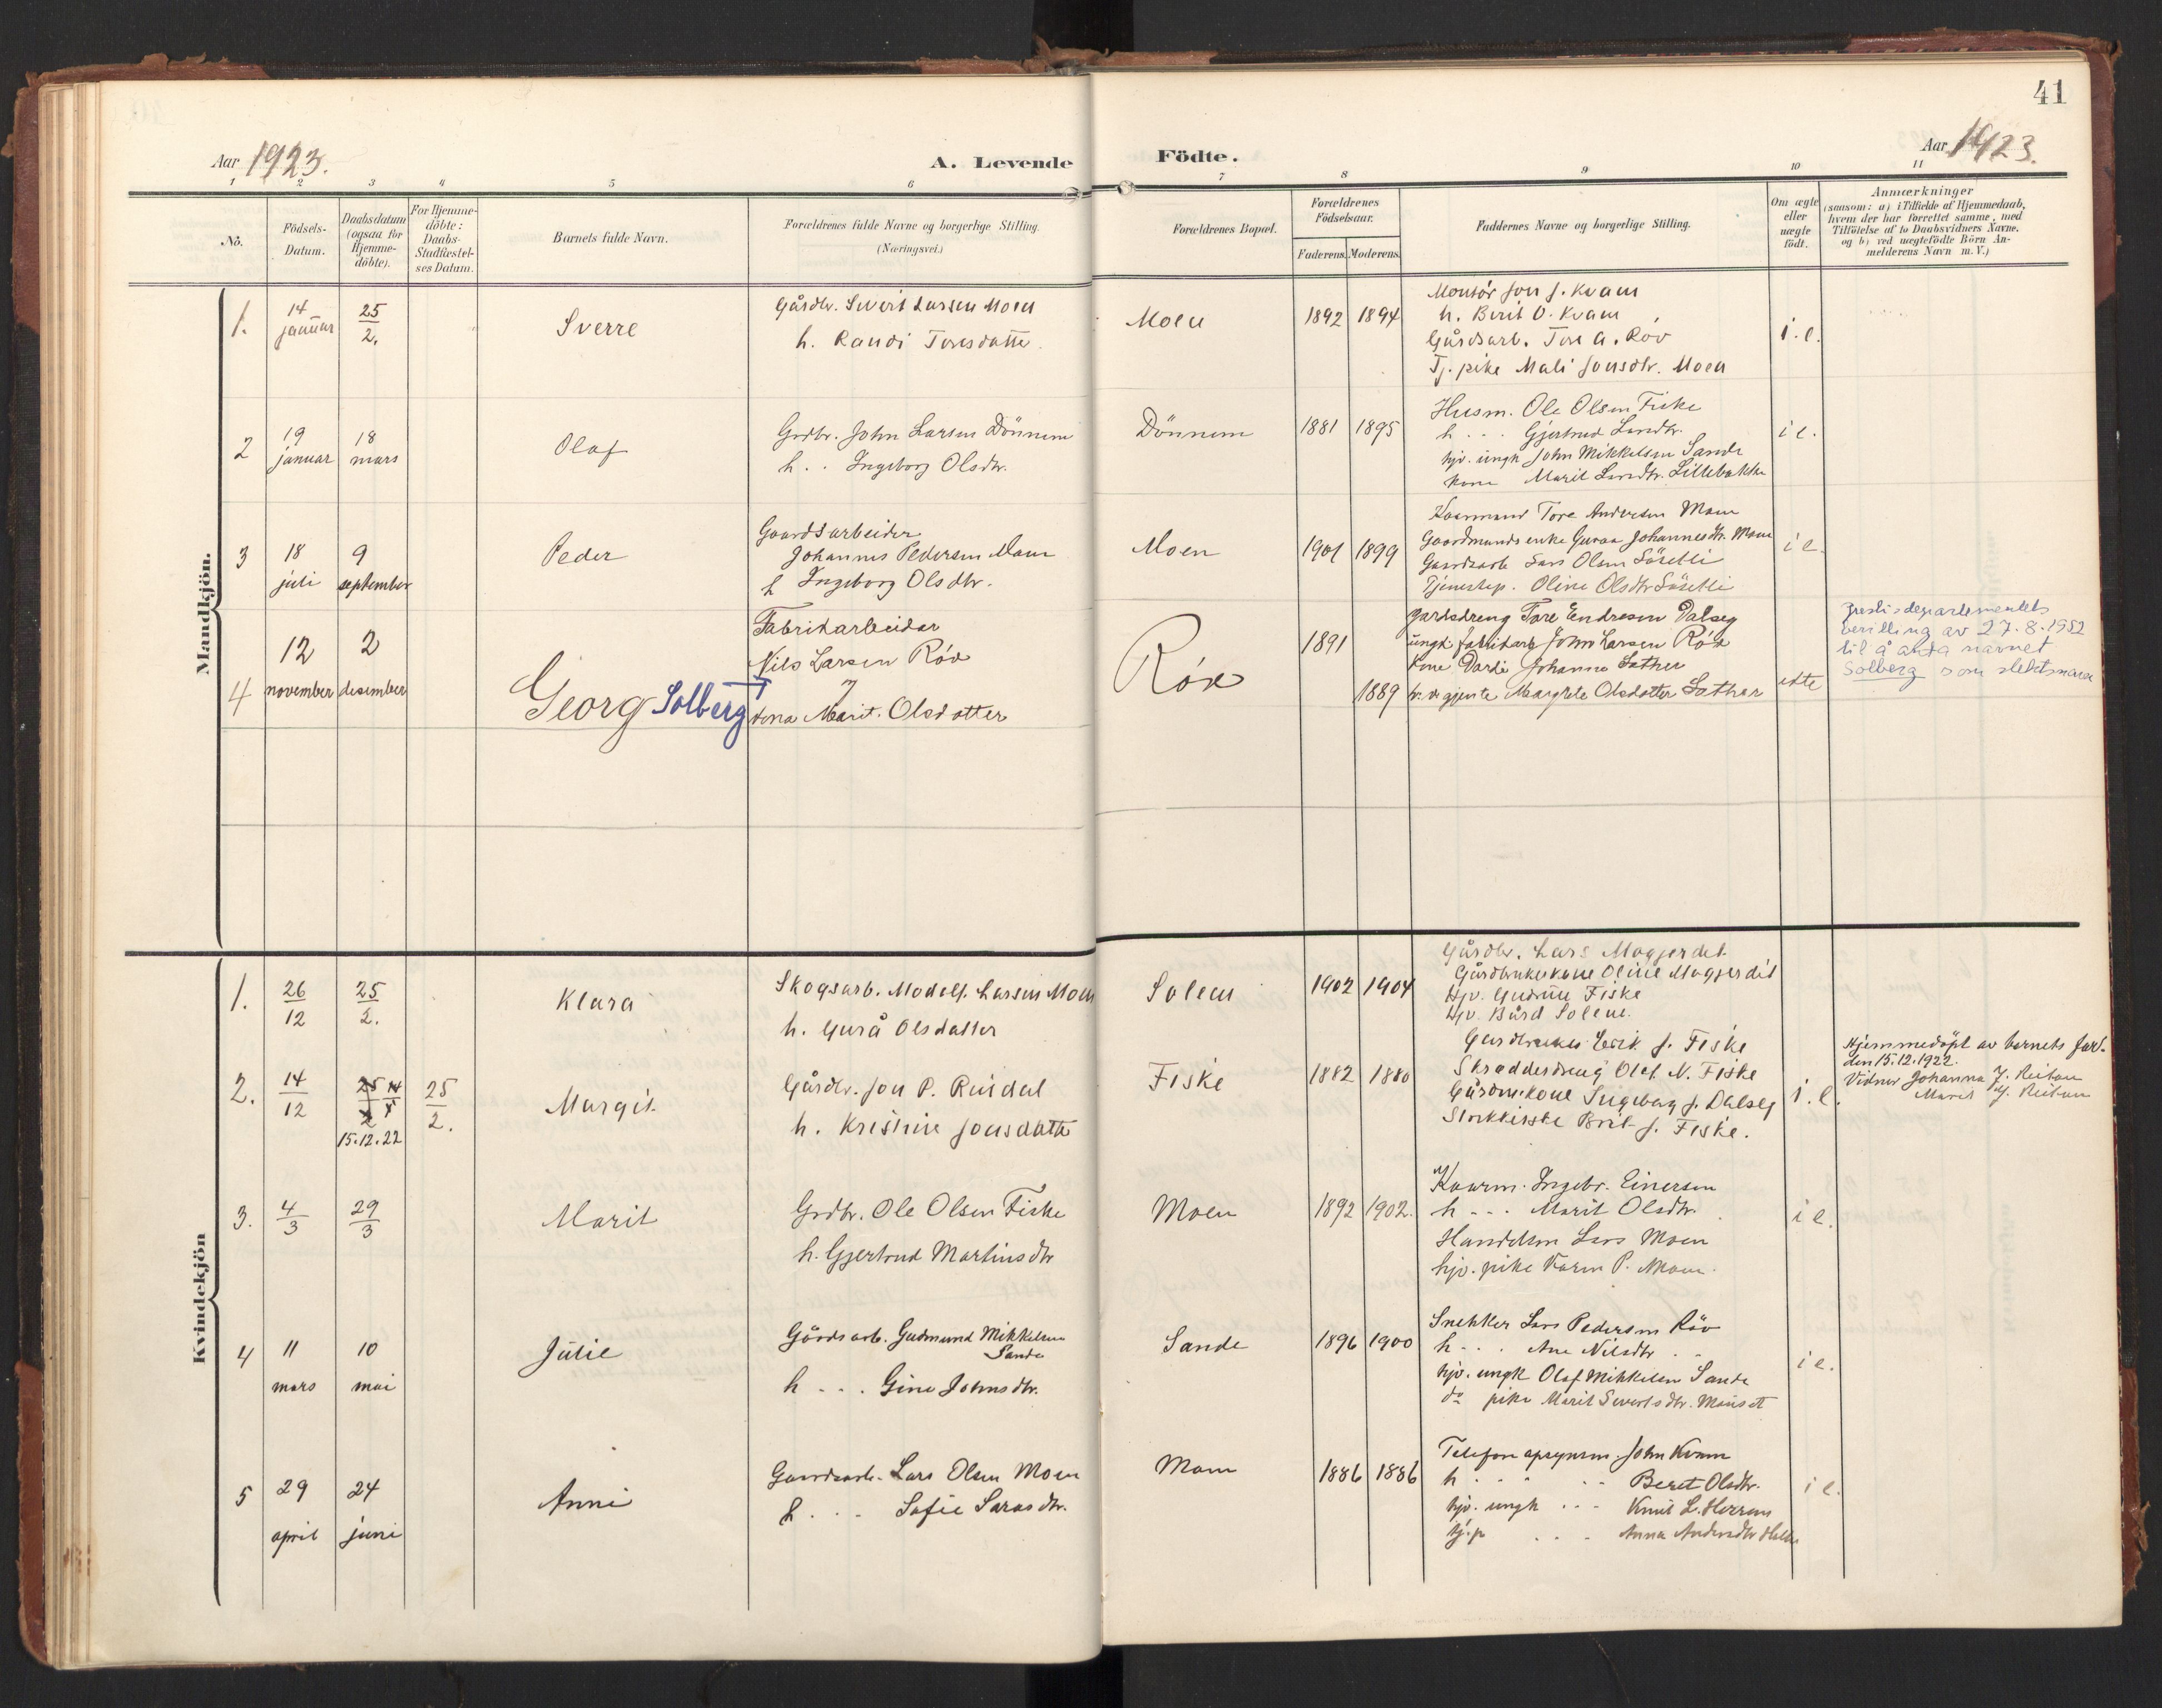 41
Aar 1923.
A. Levende
Födte.
Aar 1923.
1 2 3 4 5 6
7 8 9 10 11
No.
Födsels-
Datum.
Daabsdatum
(ogsaa for
Hjemme-
döbte).
For Hjemme-
döbte:
Daabs-
Stadfæstel-
ses Datum.
Barnets fulde Navn.
Forældrenes fulde Navne og borgerlige Stilling.
(Næringsvei.)
Forældrenes Bopæl.
Forældrenes
Födselsaar.
Faderens. Moderens.
Faddernes Navne og borgerlige Stilling.
Om ægte
eller
uægte
födt.
Anmærkninger
(saasom: a) i Tilfælde af Hjemmedaab,
hvem der har forrettet samme, med
Tilföielse af to Daabsvidners Navne.
og b) ved uægtefödte Börn An-
melderens Navn m. V.)
Mandkjön.
1.
14
januar
25
2.
Sverre
Gårdbr. Sivert Larsen Moen
h. Randi Toresdatter
Moen
1892 1894
Montör Jon J. Kvam
h. Berit O. Kvam
Gårdsarb. Tore A. Röv
Tj. pike Mali Jonsdtr. Moen
i. e.
2
19
januar
18
mars
Olaf
Grdbr. John Larsen Dönnem
h. . Ingeborg Olsdtr.
Dönnem
1881 1895
Husm. Ole Olsen Fiske
h . . . Gjertrud Larsdtr.
hjv. ungk John Mikkelsen Sande
kone Marit Larsdtr. Lillebakke
i e.
3
18
juli
9
september
Peder
Gaardsarbeider
Johannes Pedersen Moen
h Ingeborg Olsdtr.
Moen
1901 1899
Kaarmand Tore Andersen Moen
Gaardmands enke Guraa Johannesdtr. Moen
Gaardsarb Lars Olsen Säsetli
Tjenestep. Oline Olsdtr Säsetli
i e.
4
12
november
2
desember
Georg Solberg
Fabrikarbeider
Nils Larsen Röv
kona Marit Olsdatter
Röv
1891
1889
gardsdreng Tore Endresen Dalseg
ungk fabrikarb John Larsen Röv
kone Dardi Johanne Sather
h.v. gjente Margrete Olsdatter Sather
ekte
Justisdepartementets
bevilling av 27.8.1952
til å anta navnet
Solberg som slektsnavn
Kvindekjön
1.
26
12
25
2.
Klara
Skogsarb. Modolf Larsen Moen
h. Gurå Olsdatter
Solem
1902 1904
Gårdbr. Lars Mogjerdet
Gårdbrukerkone Oline Mogjerdet
Hjv. Gudrun Fiske
Hjv. Bård Solem.
2.
14
12
25 14
2 4
15.12.22
25
2.
Margit
Gårdbr. Jon P. Ruidal
h. Kristine Jonsdatter
Fiske
1882 1880
Gardbruker Erik J. Fiske
Skredderdreng Olaf N. Fiske
Gårdmkone Ingeborg J. Dalseg
Strikkerske Brit J. Fiske.
i. e.
Hjemmedöpt av barnets far.
den 15.12.1922.
Vidner Johanna J. Reitan
Marit J. Reitan
3.
4
3
29
3
Marit
Grdbr. Ole Olsen Fiske
h. Gjertrud Martinsdtr
Moen
1892 1902.
Kaarm. Ingebr. Einersen
h - - - Marit Olsdtr.
Handelsm Lars Moen
hjv. pike Karen P. Moen.
i e.
4
11
mars
10
mai
Julie
Gårdsarb. Gudmund Mikkelsen
Sande
h . . . Gina Johnsdtr.
Sande
1896 1900
Snekker Lars Pedersen Röv
h . . . Ane Nilsdtr . .
hjv. ungk Olaf Mikkelsen Sande
do pike Marit Sivertsdtr. Mauset
i e.
5
29
april
24
juni
Anne
Gaardsarb. Lars Olsen Moen
h . . . Sofie Larsdtr.
Moen
1886 1886
Telefonopsynsm. John Kvam
h . . . Beret Olsdtr.
hjv. ungk . . . Knut L. Herrem
hj.p . . . Anna Andersdtr Halle
i e.